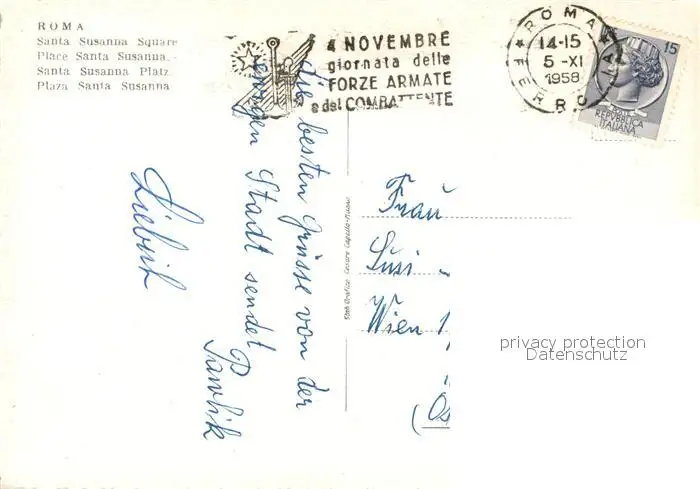 ROMA
Santa Susanna Square
Place Santa Susanna.
Santa Susanna Platz
Plaza Santa Susanna
4 NOVEMBRE
giornata delle
FORZE ARMATE
e del COMBATTENTE
ROMA
FERR.
14-15
5 -XI
1958
15
REPUBBLICA
ITALIANA
Die besten Grüsse von der
ewigen Stadt sendet
Pawlik
Liebich
Stab Grafico Cesare Capello-Milano
Frau
Susi
Wien 1
(Ös
privacy protection
Datenschutz